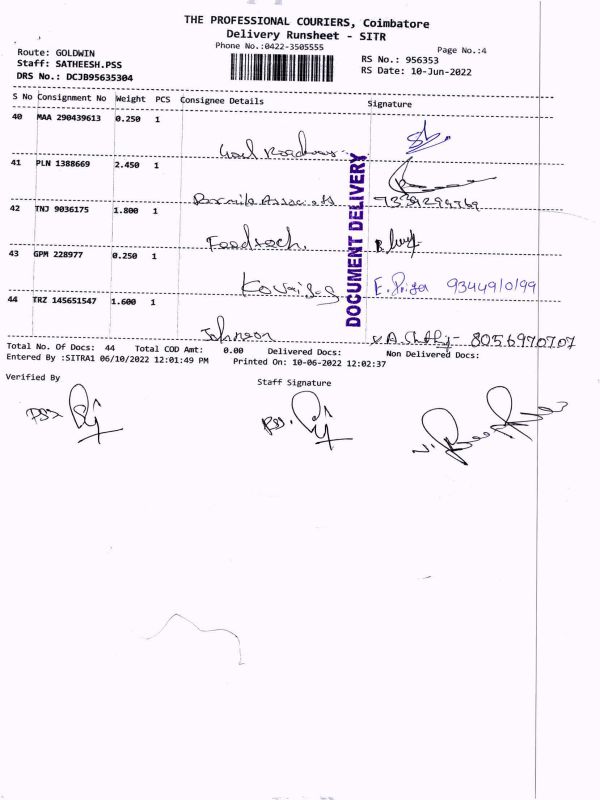 THE PROFESSIONAL COURIERS, Coimbatore
Delivery Runsheet - SITR
Phone No.:0422-3505555
Page No.:4
Route: GOLDWIN
Staff: SATHEESH.PSS
DRS No.: DCJB95635304
RS No.: 956353
RS Date: 10-Jun-2022
S No Consignment No Weight PCS Consignee Details Signature
40 MAA 290439613 0.250 1
41 PLN 1388669 2.450 1
Associates
42 TNJ 9036175 1.800 1
43 GPM 228977 0.250 1
E. Priya 9344910199
44 TRZ 145651547 1.600 1
Johnson
8056970707
DOCUMENT DELIVERY
Total No. Of Docs: 44 Total COD Amt: 0.00 Delivered Docs: Non Delivered Docs:
Entered By :SITRA1 06/10/2022 12:01:49 PM Printed On: 10-06-2022 12:02:37
Verified By
Staff Signature